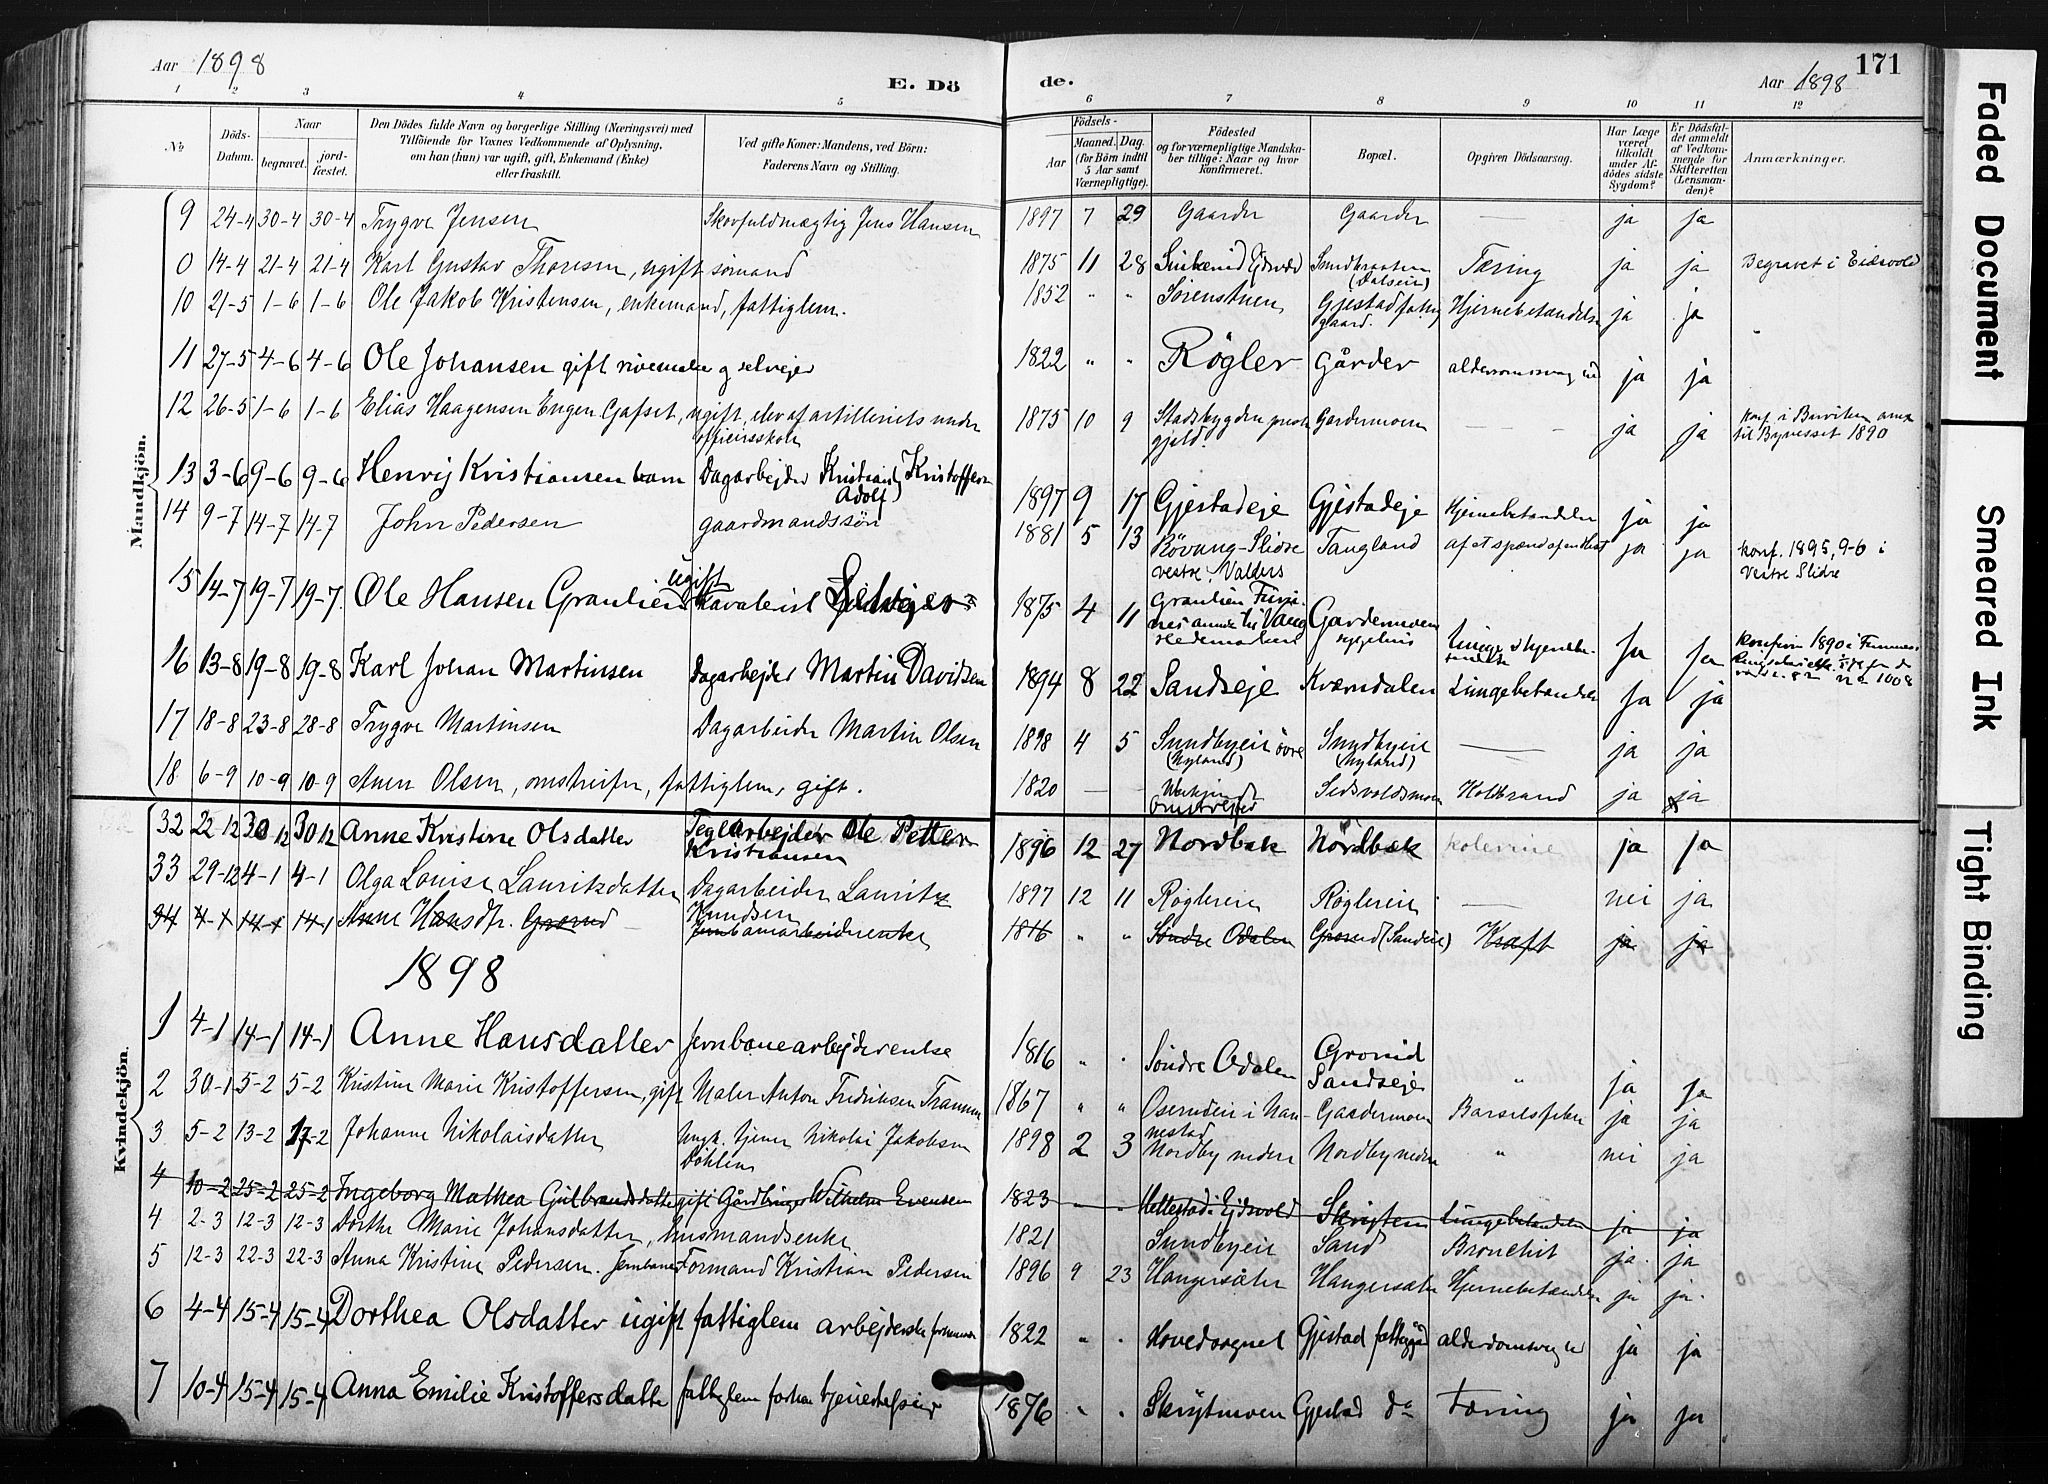 Aar 1898
E. Dö
de.
Aar 1898
171
1 2 3 4 5 6 7 8 9 10 11 12
No
Döds-Datum.
Naar
begravet.
jord-fæstet.
Den Dödes fulde Navn og borgerlige Stilling (Næringsvei) med
Tilföiende for Voxnes Vedkommende af Oplysning,
om han (hun) var ugift, gift, Enkemand (Enke)
eller fraskilt.
Ved gifte Koner: Mandens, ved Börn:
Faderens Navn og Stilling.
Födsels-
Aar
Maaned. Dag.
(for Börn indtil
5 Aar samt
Værnepligtige).
Födested
og for værnepligtige Mandska-
ber tillige: Naar og hvor
konfirmeret.
Bopæl.
Opgiven Dödsaarsag.
Har Læge
været
tilkaldt
under Af-
dödes sidste
Sygdom?
Er Dödsfal-
det anmeldt
af Vedkom-
mende for
Skifteretten
(Lensman-
den)?
Anmærkninger.
Mandkjön.
9 24-4 30-4 30-4 Trygve Jensen Skovfuldmægtig Jens Hansen 1897 7 29 Gaarder Gaarder — ja ja
0 14-4 21-4 21-4 Karl Gustav Thoresen, ugift sømand 1875 11 28 Ejdsvold (Dalseie) Tæring ja ja Begravet i Eidsvold
10 21-5 1-6 1-6 Ole Jakob Kristensen, enkemand, fattiglem. 1852 " " Sørenstuen Gjestad fattiggaard. Hjernebetændelse ja ja
11 27-5 4-6 4-6 Ole Johansen gift og selvejer 1822 " " Røgler Gårder ja ja
12 26-5 1-6 1-6 Elias Haagensen Engen, ugift, elev af artilleriets underofficersskole 1875 10 9 Stadsbygden prestegjeld. Gardermoen — ja ja konf. i til Byneset 1890
13 3-6 9-6 9-6 Henrij Kristiansen barn Dagarbejder Kristian Adolf Kristoffersen 1897 9 17 Gjestadeje Gjestadeje Hjernebetændelse ja ja
14 9-7 14-7 14-7 John Pedersen gaardmandssøn 1881 5 13 Slidre vestre, Valders Tangland af et spænd af en Hest ja ja konf. 1895, 9-6 i Vestre Slidre
15 14-7 19-7 19-7 Ole Hansen Granlien ugift Kavalerist 1875 4 11 Granlien Vang Hedemarken Gardermoen sygehus Lunge & hjernebetændelse Ja Ja 1890 i 1008
16 13-8 19-8 19-8 Karl Johan Martinsen Dagarbejder Martin Davidsen 1894 8 22 Sandseje Kværndalen Lungebetændelse Ja ja
17 18-8 23-8 28-8 Trygve Martinsen Dagarbeider Martin Olsen 1898 4 5 Sundbyeie övre (Nyland) Sundbyeie (Nyland) — ja ja
18 6-9 10-9 10-9 Olsen, omstreifer, fattiglem, gift. 1820 — — Koldbrand ja ja
Kvindekjön.
32 22 12 30 12 30 12 Anne Kristine Olsdatter Teglarbejder Ole Petter Kristiansen 1896 12 27 Nordbæk Nordbæk kolerine ja ja
33 29-12 4-1 4-1 Olga Louise Lauritzdatter Dagarbeider Lauritz Knudsen 1897 12 11 Røglereie Røglereie — nei ja
34 4-1 14-1 14-1 Anne Hansdtr. Grønud Jernbanearbeiderenke 1816 " " Søndre Odalen Grønud (Sandeie) Kræft ja ja
1898
1 4-1 14-1 14-1 Anne Hansdatter Jernbanearbejderenke 1816 " " Söndre Odalen Gronud Sandseje " ja ja
2 30-1 5-2 5-2 Kristine Marie Kristoffersen, gift Maler Anton Fredriksen 1867 " " i Nannestad Gardermoen Barselfeber ja ja
3 5-2 13-2 17-2 Johanne Nikolaisdatter Ungk. tjener Nikolai Jakobsen Döhlen 1898 2 3 Nordby nedre Nordby nedre " nei ja
4 10-2 25-2 25-2 Ingeborg Mathea Gulbrandsdatter gift Gårdbruger Wilhelm Evensen 1823 — — i Ejdsvold Lungebetændelse ja ja
4 2-3 12-3 12-3 Dorthe Marie Johansdatter, husmandsenke 1821 Sundbyeie Sand Bronchit ja ja
5 12-3 22-3 22-3 Anna Kristine Pedersen. Jernbane Formand Kristian Pedersen 1896 9 23 Hangersæter Hangersæter Hjernebetændelse ja ja.
6 4-4 15-4 15-4 Dorthea Olsdatter ugift fattiglem arbejderske 1822 " " Hovedsognet Gjestad fattiggård ja ja
7 10-4 15-4 15-4 Anna Emilie Kristoffersdatter fattiglem forhen tjenestepige 1876 " " Gjestad do Tæring ja ja
Faded Document
Smeared Ink
Tight Binding